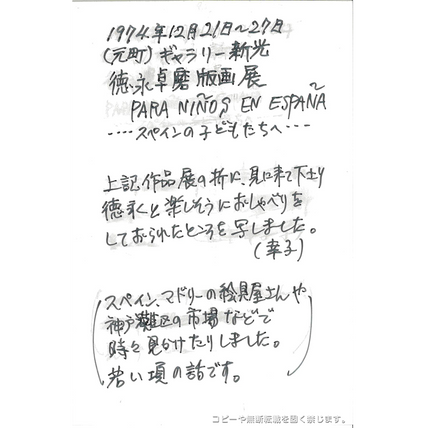 1974年12月21日〜27日
(元町)ギャラリー新光
徳永卓磨版画展
PARA NIÑOS EN ESPAÑA
····スペインの子どもたちへ···
上記作品展の折に、見に来て下さり
徳永と楽しそうにおしゃべりを
しておられたところを写しました。
(幸子)
スペイン、マドリーの絵具屋さんや
神戸灘区の市場などで
時々見かけたりしました。
若い頃の話です。
コピーや無断転載を固く禁じます。